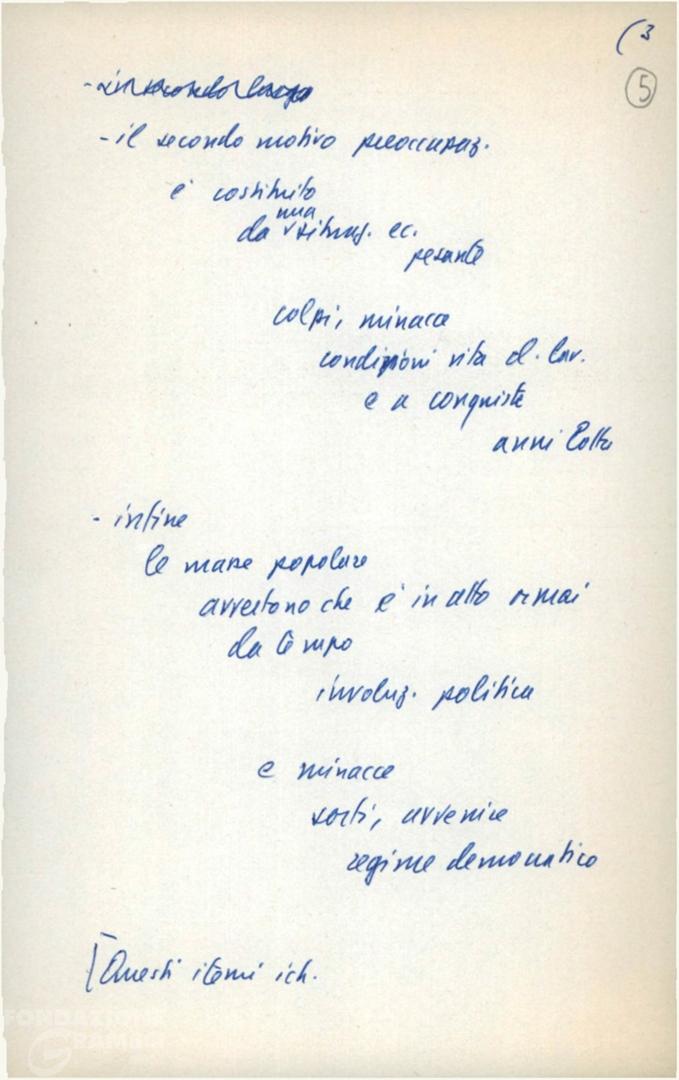 (3
5
- in secondo luogo
- il secondo motivo preoccupaz.
è costituito
da una situaz. ec.
pesante
colpi, minacce
condizioni vita d. lav.
e a conquiste
anni lotte
- infine
le masse popolari
avvertono che è in atto ormai
da tempo
involuz. politica
e minacce
sorti, avvenire
regime democratico
Questi i temi
FONDAZIONE
GRAMSCI